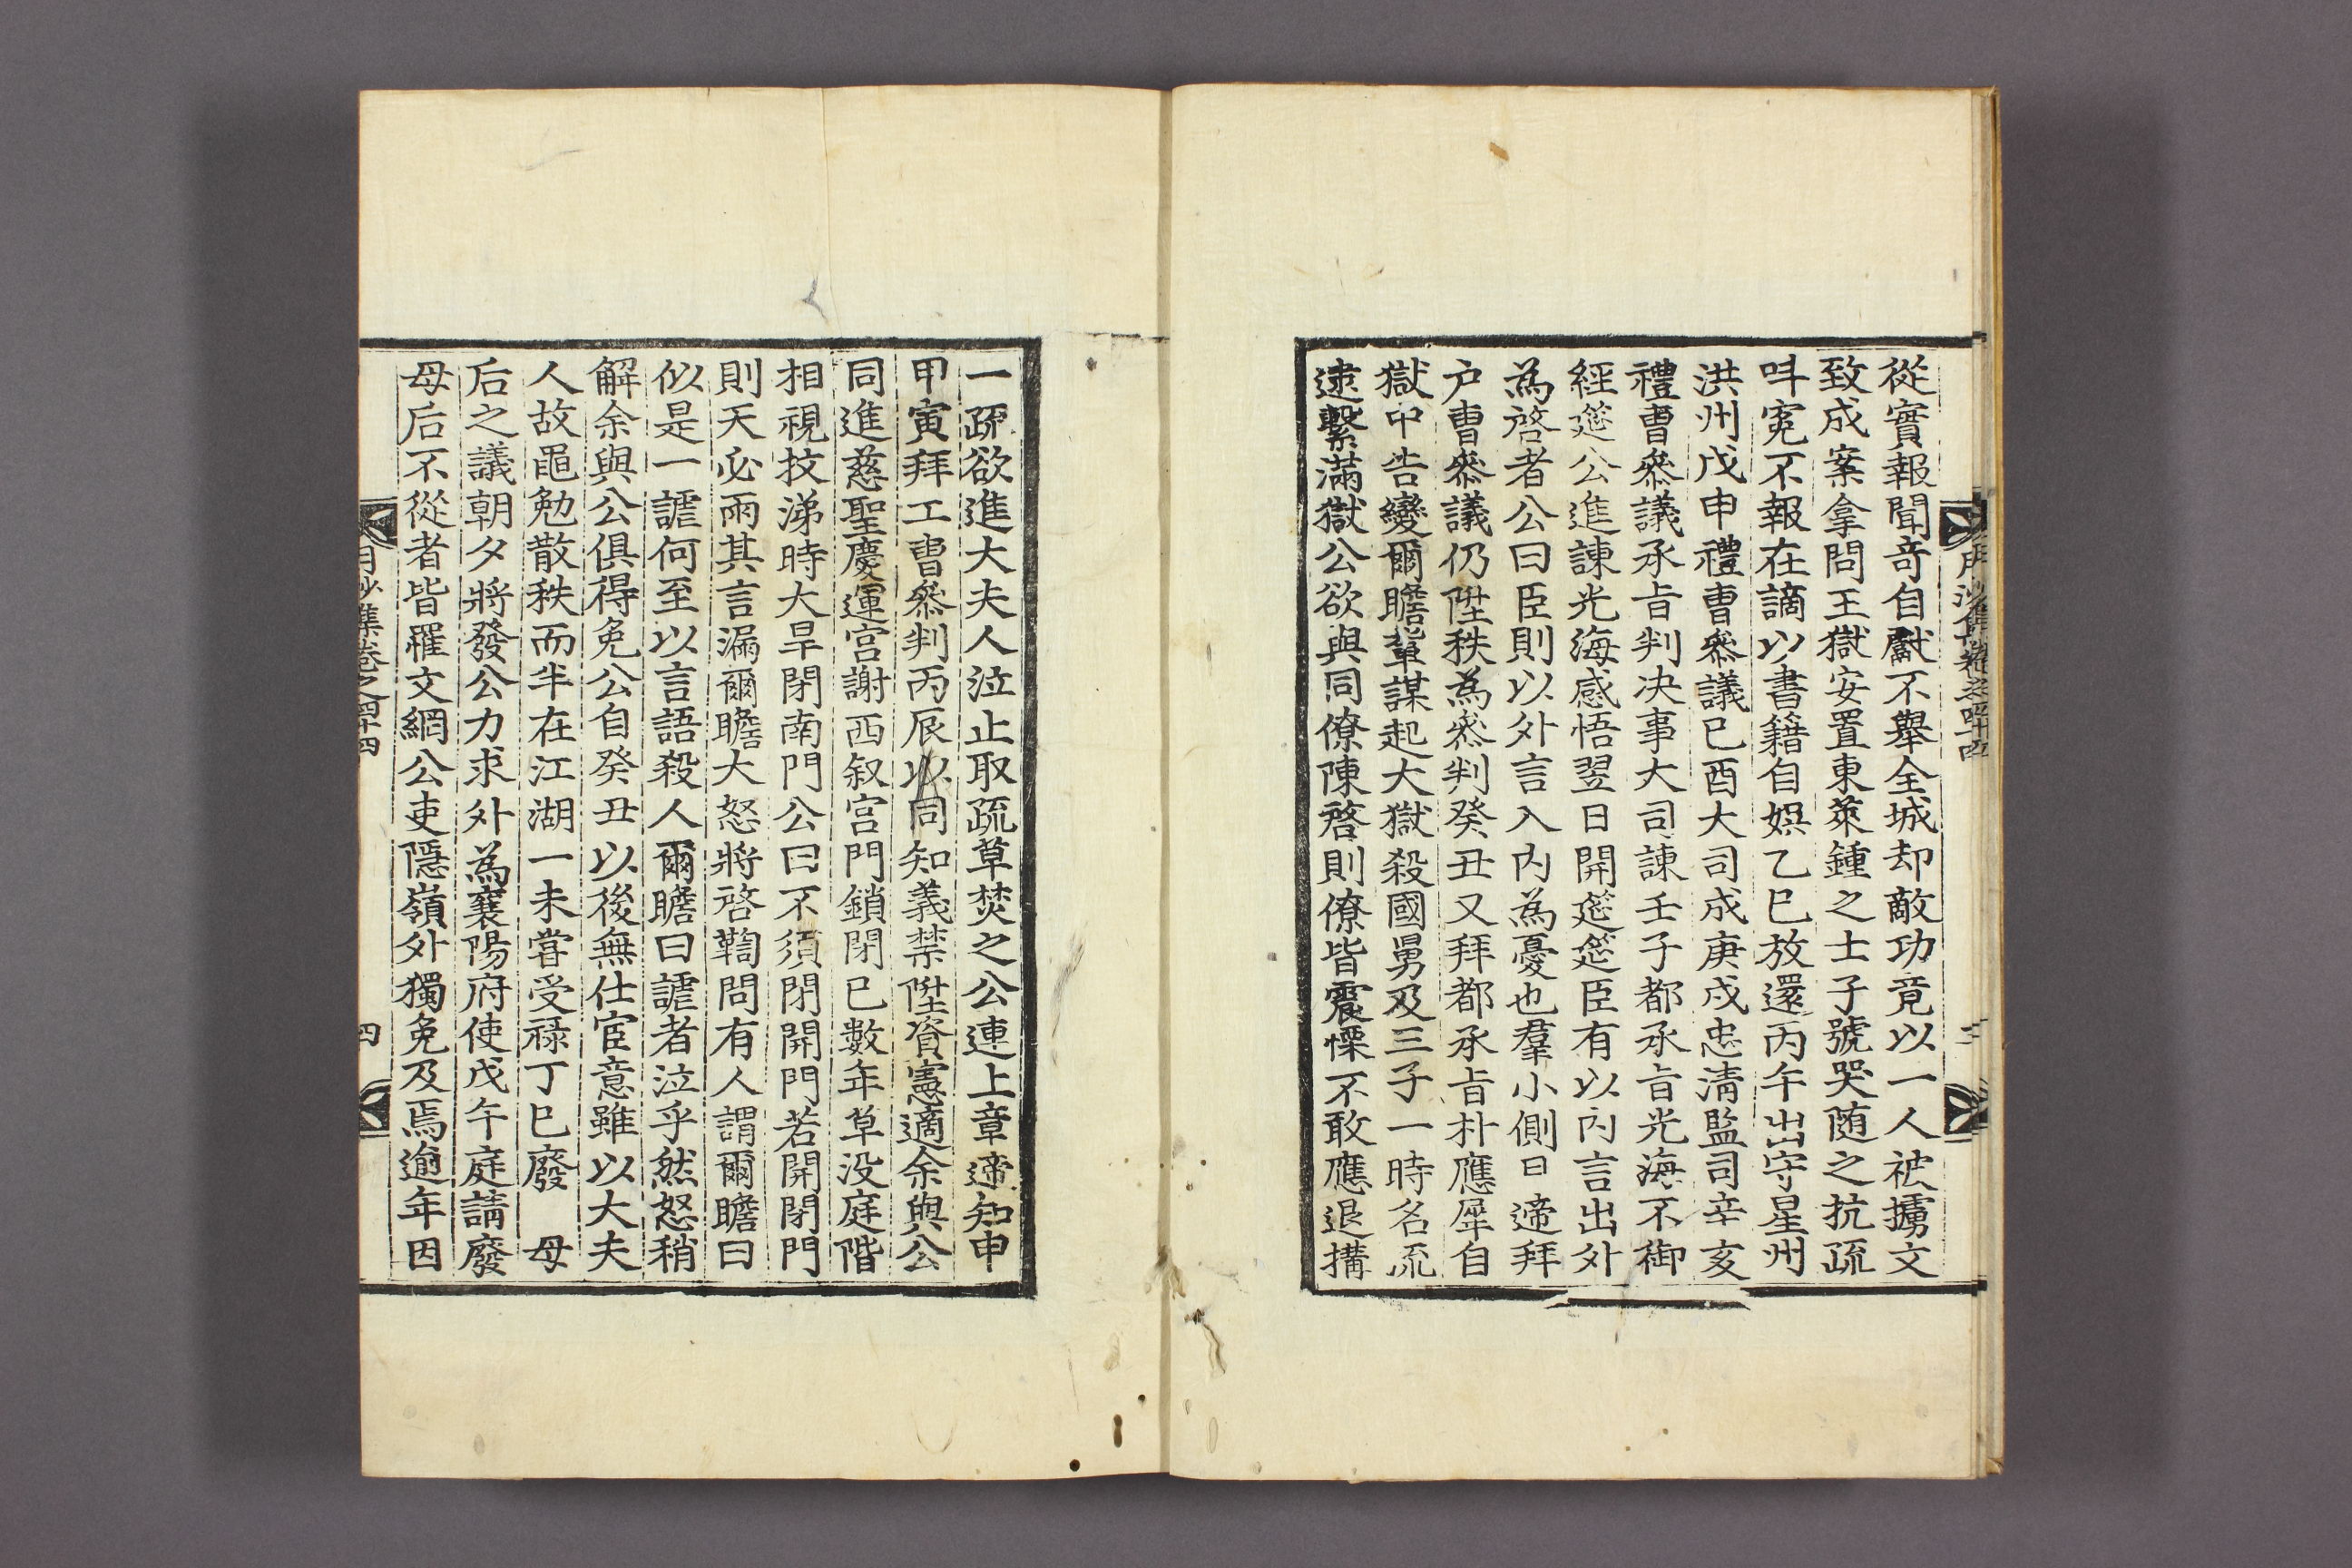 從實報聞奇自獻不舉全城却敵功竟以一人被擄文
致成案拿問王獄安置東萊鍾之士子號哭随之抗疏
呌寃不報在謫以書籍自娛乙巳放還丙午出守星州
洪州戊申禮曹叅議己酉大司成庚戌忠淸監司辛亥
禮曹叅議承旨判决事大司諫壬子都承旨光海不御
經筵公進諫光海感悟翌日開筵筵臣有以內言出外
為啓者公曰臣則以外言入內為憂也羣小側目遞拜
户曹叅議仍陞秩為叅判癸丑又拜都承旨朴應犀自
獄中告變爾瞻輩謀起大獄殺國舅及三子一時名流
逮繫滿獄公欲與同僚陳啓則僚皆震慄不敢應退搆
月沙集卷之四十四
三
一疏欲進大夫人泣止取疏草焚之公連上章遞知申
甲寅拜工曹叅判丙辰以同知義禁陞資憲適余與公
同進慈聖慶運宮謝西叙宮門鎖閉已數年草没庭階
相視抆涕時大旱閉南門公曰不須閉開門若開閉門
則天必雨其言漏爾瞻大怒將啓鞫問有人謂爾瞻曰
似是一謔何至以言語殺人爾瞻曰謔者泣乎然怒稍
解余與公俱得免公自癸丑以後無仕宦意雖以大夫
人故黽勉散秩而半在江湖一未嘗受祿丁巳廢　母
后之議朝夕將發公力求外為襄陽府使戊午庭請廢
母后不從者皆罹文網公吏隱嶺外獨免及焉逾年因
月沙集卷之四十四
四